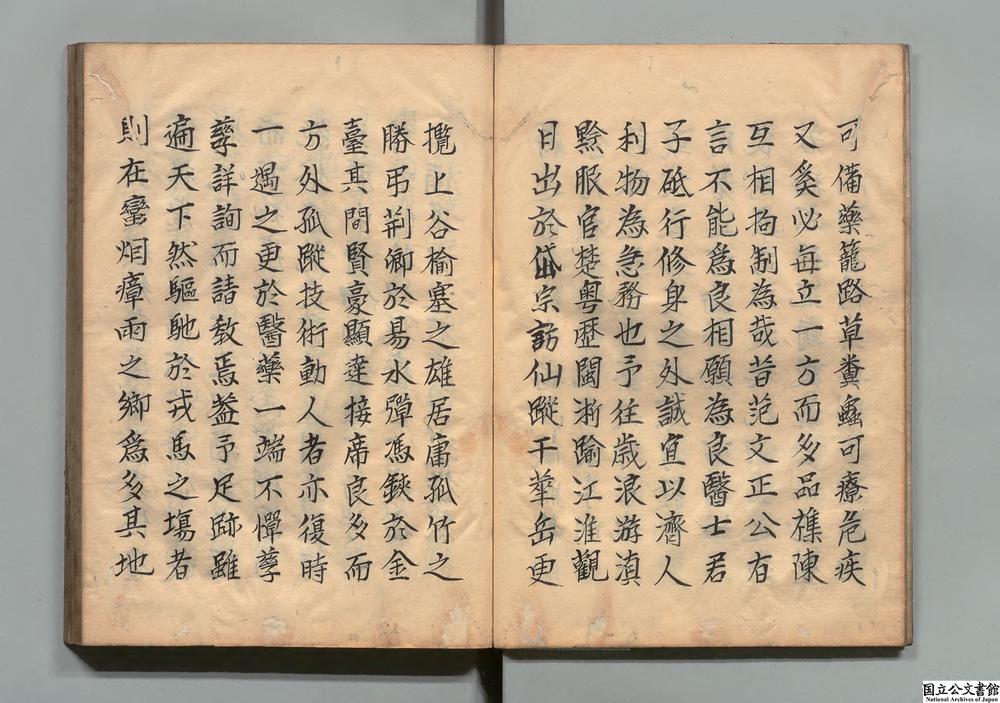 可備藥籠路草糞蟲可療危疾
又奚必每立一方而多品襍陳
互相拘制為哉昔范文正公有
言不能為良相願為良醫士君
子砥行修身之外誠宜以濟人
利物為急務也予往歲浪游滇
黔服官楚粵歷閩浙踰江淮觀
日出於岱宗訪仙蹤于華岳更
攬上谷榆塞之雄居庸孤竹之
勝弔荆卿於易水彈馮鋏於金
臺其間賢豪顯達接席良多而
方外孤蹤技術動人者亦復時
一遇之更於醫藥一端不憚孳
孳詳詢而請教焉蓋予足跡雖
遍天下然驅馳於戎馬之塲者
則在蠻烟瘴雨之鄉為多其地
国立公文書館
National Archives of Japan